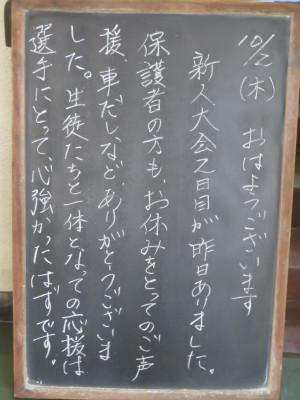 10/2(木) おはようございます
新人大会2日目が昨日ありました。
保護者の方も、お休みをとってのご声
援、車だしなど、ありがとうございま
した。生徒たちと一体となっての応援は
選手にとって、心強かったはずです。